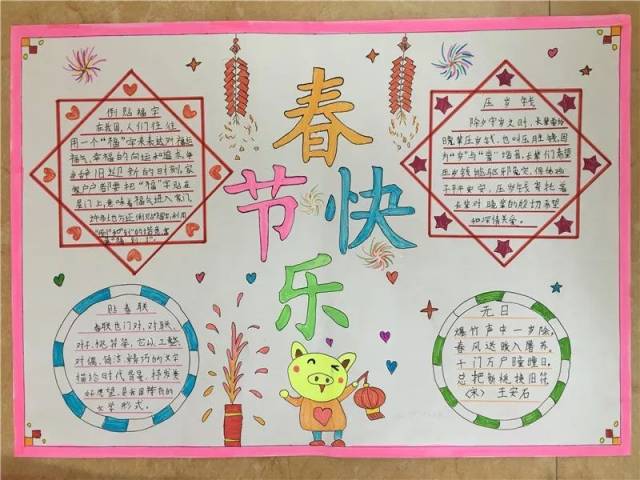 春
节
快
乐
倒贴福字
在我国,人们往往
用一个"福"字来表达对福运
福气,幸福的向往和追求,每
当辞旧迎新的时刻,家
家户户都要把"福"字贴在
屋门上,意味着福气进入家门,
压岁钱
除夕守岁之时,长辈要给
晚辈压岁钱,也叫压胜钱,因
为"岁"与"祟"谐音,长辈们希望
压岁钱能
平平安安,压岁钱寄托着
长辈对晚辈的殷切希望
和深情关爱。
贴春联
春联也门对、对联、
对子,桃符等,它以工整、
对偶、简洁、精巧的文字
描绘时代背景,抒发美
好愿望,是我国特有的
文学形式。
元日
爆竹声中一岁除,
春风送暖入屠苏。
千门万户曈曈日,
总把新桃换旧符。
(宋) 王安石